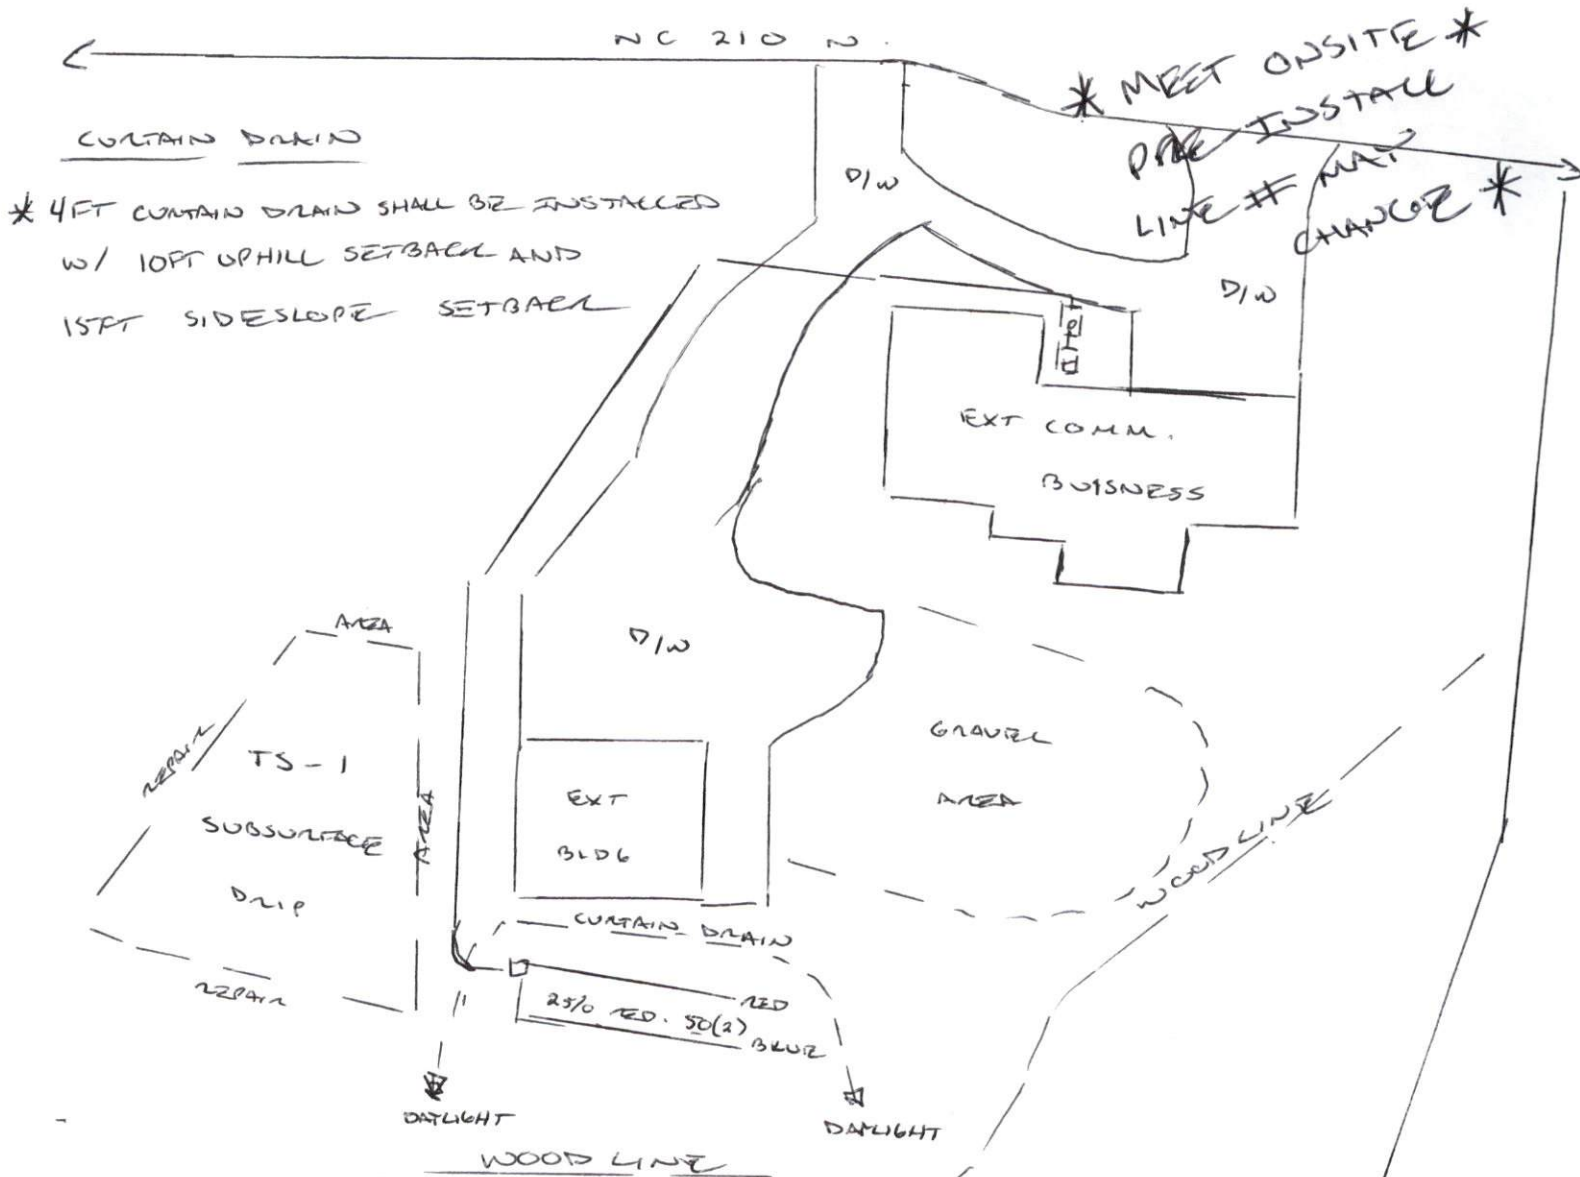 NC 210 N.
* MEET ONSITE *
PRE-INSTALL
LINE # MAY
CHANGE *
CURTAIN DRAIN
* 4FT CURTAIN DRAIN SHALL BE INSTALLED
W/ 10FT UPHILL SETBACK AND
15FT SIDESLOPE SETBACK
D/W
D/W
EXT COMM.
BUISNESS
D/W
AREA
REPAIR
TS-1
SUBSURFACE
DRIP
AREA
REPAIR
EXT
BLDG
GRAVEL
AREA
WOOD LINE
CURTAIN DRAIN
RED
25% RED. 50(2)
BLUE
DAYLIGHT
DAYLIGHT
WOOD LINE